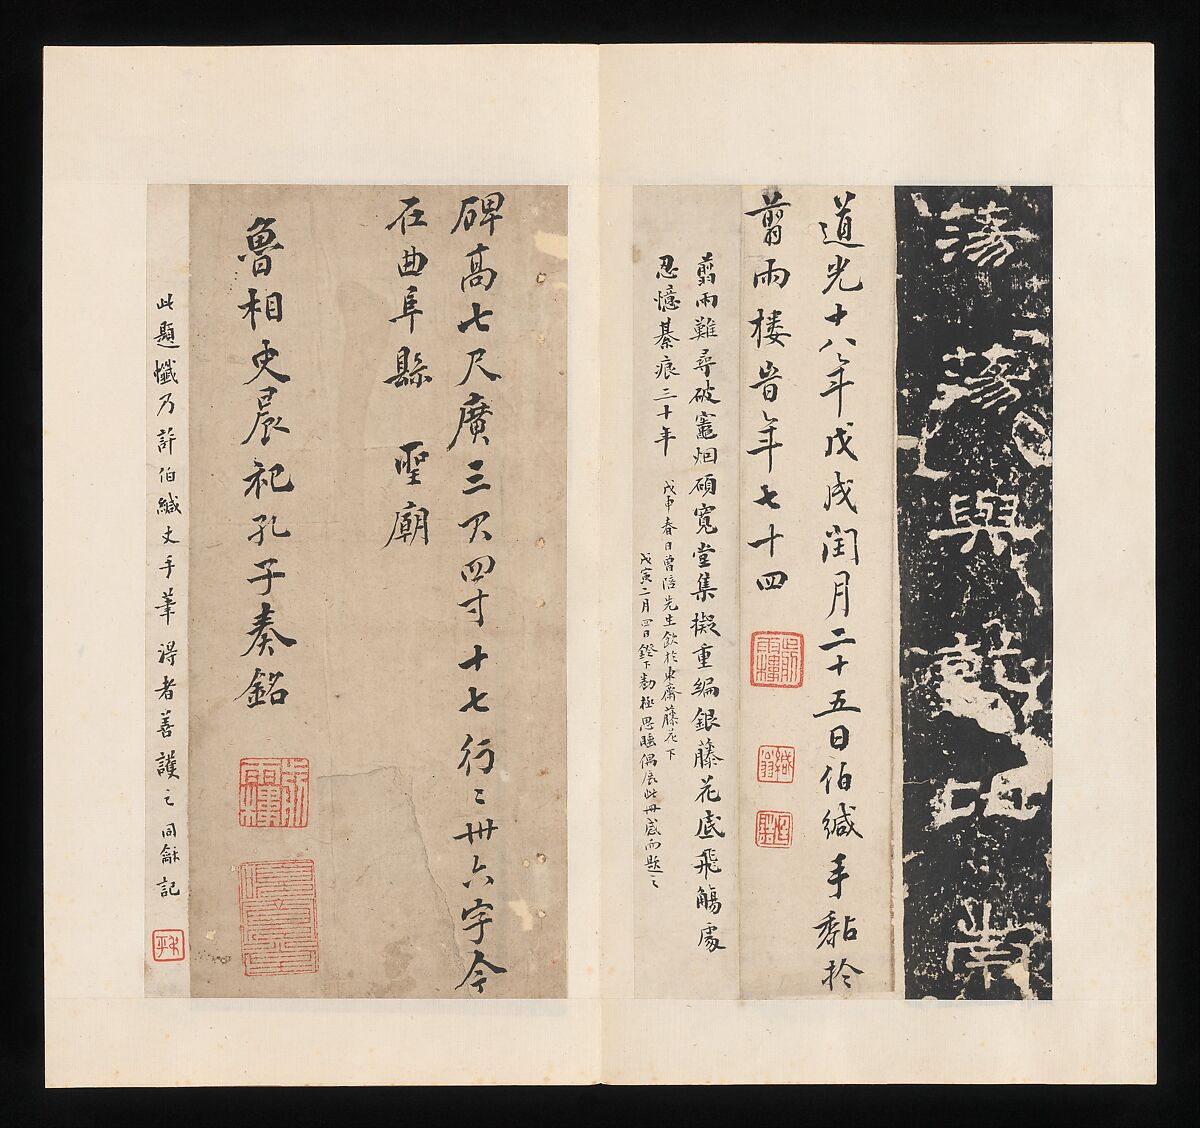 蕩蕩與乾比崇
道光十八年戊戌閏月二十五日伯緘手黏於
翦雨樓昔年七十四
翦雨樓
緘翁
翦雨難尋破竈烟碩寬堂集擬重編銀藤花底飛觴處
忍憶綦痕三十年
戊申春日曾陪先生飲於東齋藤花下
戊寅二月四日鐙下勘極思睡偶展此冊感而題之
碑高七尺廣三尺四寸十七行〻卅六字今
在曲阜縣 聖廟
魯相史晨祀孔子奏銘
翦雨樓
此題懺乃許伯緘丈手筆得者善護之同龢記